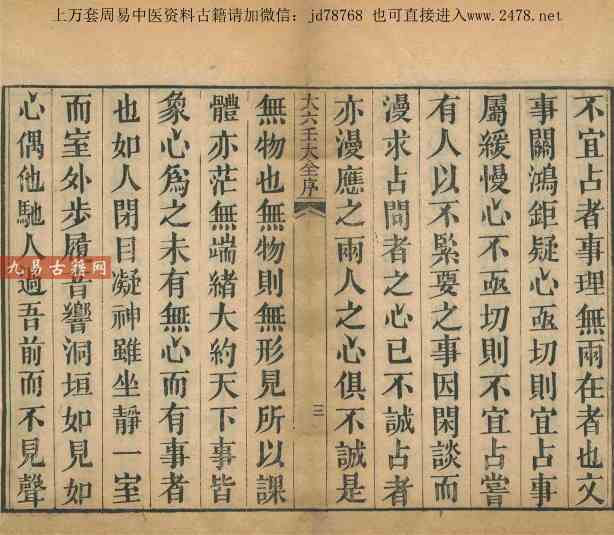 上万套周易中医资料古籍请加微信：jd78768 也可直接进入www.2478.net
不宜占者事理無兩在者也文
事關鴻鉅疑心亟切則宜占事
屬緩慢心不亟切則不宜占嘗
有人以不緊要之事因閑談而
漫求占問者之心已不誠占者
亦漫應之兩人之心俱不誠是
大六壬大全序
三
無物也無物則無形見所以課
體亦茫無端緒大約天下事皆
象心為之未有無心而有事者
也如人閉目凝神雖坐靜一室
而室外步履音響洞垣如見如
心偶他馳人過吾前而不見聲
九易古籍网